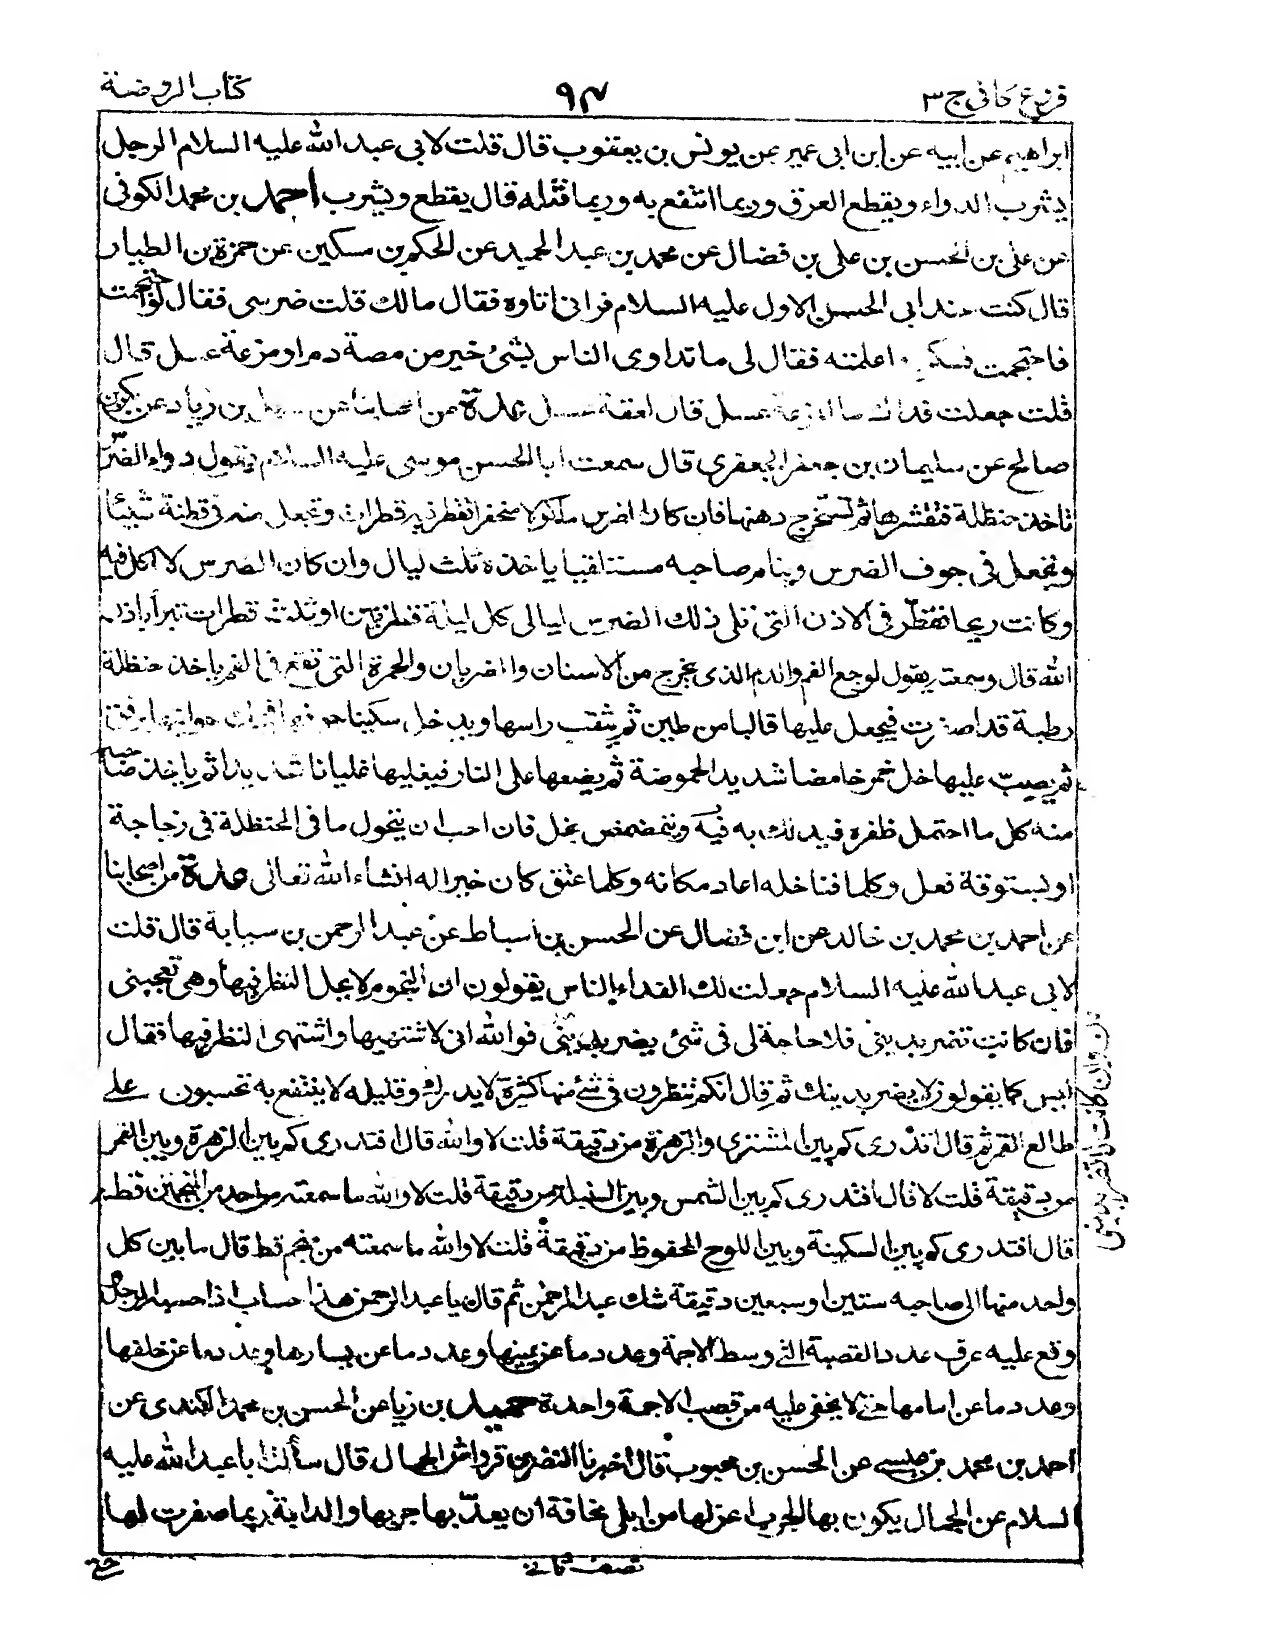 فروع كافي ج ٣
٩٧
كتاب الروضة
ابراهيم عن ابيه عن ابن ابى عمير عن يونس بن يعقوب قال قلت لابى عبد الله عليه السلام الرجل
يشرب الدواء ويقطع العرق وربما انتفع به وربما قتله قال يقطع ويشرب احمد بن محمد الكوفى
عن على بن الحسن بن على بن فضال عن محمد بن عبد الحميد عن الحكم بن مسكين عن حمزة بن الطيار
قال كنت عند ابى الحسن الاول عليه السلام فرانى اتاوه فقال مالك قلت ضرسى فقال لو احتجمت
فاحتجمت فسكن فاعلمته فقال لى ما تداوى الناس بشئ خير من مصة دم او مزعة عسل قال
قلت جعلت فداك ما المزعة عسل قال لعقة عسل عدة من اصحابنا عن سهل بن زياد عن بكر بن
صالح عن سليمان بن جعفر الجعفرى قال سمعت ابا الحسن موسى عليه السلام يقول دواء الضرس
تاخذ حنظلة فتقشرها ثم تستخرج دهنها فان كان الضرس ماكولا منحفرا تقطر فيه قطرات وتجعل منه فى قطنة شيئا
وتجعل فى جوف الضرس وينام صاحبه مستلقيا ياخذه ثلث ليال وان كان الضرس لا اكل فيه
وكانت ريحا تقطر فى الاذن التى تلى ذلك الضرس ليالى كل ليلة قطرتين او ثلث قطرات تبرأ باذن
الله قال وسمعته يقول لوجع الفم والدم الذى يخرج من الاسنان والضربان والحمرة التى تقع فى الفم ياخذ حنظلة
رطبة قد اصفرت فيجعل عليها قالبا من طين ثم يثقب راسها ويدخل سكينا جوفها فيحك جوانبها برفق
ثم يصب عليها خل خمر حامضا شديد الحموضة ثم يضعها على النار فيغليها غليانا شديدا ثم ياخذ صاحبه
منه كل ما احتمل ظفره فيدلك به فيه ويتمضمض بخل فان احب ان يحول ما فى الحنظلة فى زجاجة
او بستوقة فعل وكلما فنا خله اعاد مكانه وكلما عتق كان خيرا له انشاء الله تعالى عدة من اصحابنا
عن احمد بن محمد بن خالد عن ابن فضال عن الحسن بن اسباط عن عبد الرحمن بن سيابة قال قلت
لابى عبد الله عليه السلام جعلت لك الفداء ان الناس يقولون ان النجوم لا يحل النظر فيها وهى تعجبنى
فان كانت تضر بدينى فلا حاجة لى فى شئ يضر بدينى فوالله انى لاشتهيها واشتهى النظر فيها فقال
ليس كما يقولون لا يضر بدينك ثم قال انكم تنظرون فى شئ منها كثيره لا يدرك وقليله لا ينتفع به تحسبون على
طالع القمر ثم قال اتدرى كم بين المشترى والزهرة من دقيقة قلت لا والله قال افتدرى كم بين الزهرة وبين القمر
من دقيقة قلت لا قال افتدرى كم بين الشمس وبين السنبلة من دقيقة قلت لا والله ما سمعته من احد من المنجمين قط
قال افتدرى كم بين السكينة وبين اللوح المحفوظ من دقيقة قلت لا والله ما سمعته من منجم قط قال ما بين كل
واحد منهما الى صاحبه ستين او سبعين دقيقة شك عبد الرحمن ثم قال يا عبد الرحمن هذا حساب اذا حسبه الرجل
وقع عليه عرف عدد القصبة التى وسط الاجمة وعدد ما عن يمينها وعدد ما عن يسارها وعدد ما عن خلفها
وعدد ما عن امامها حتى لا يخفى عليه من قصب الاجمة واحدة حميد بن زياد عن الحسن بن محمد الكندى عن
احمد بن محمد بن عيسى عن الحسن بن محبوب قال اخبرنا النضر بن قرواش الجمال قال سألت ابا عبد الله عليه
السلام عن الجمال يكون بها الجرب اعزلها من ابلى مخافة ان يعديها جربها والدابة ربما صفرت لها
نصف ثانى